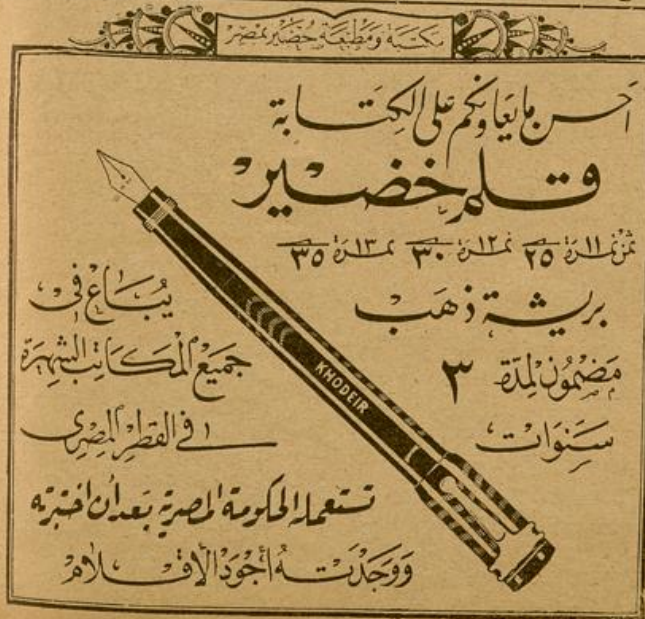 مكتبة ومطبعة خضير بمصر
احسن ما يعاونكم على الكتابة
قلم خضير
ثمن نمرة ١١ ٢٥ نمرة ١٢ ٣٠ نمرة ١٣ ٣٥
بريشة ذهب
مضمون لمدة ٣
سنوات
يُباع في
جميع المكاتب الشهيرة
في القطر المصرى
KHODEIR
تستعمله الحكومة المصرية بعد أن اختبرته
ووجدته أجود الأقلام